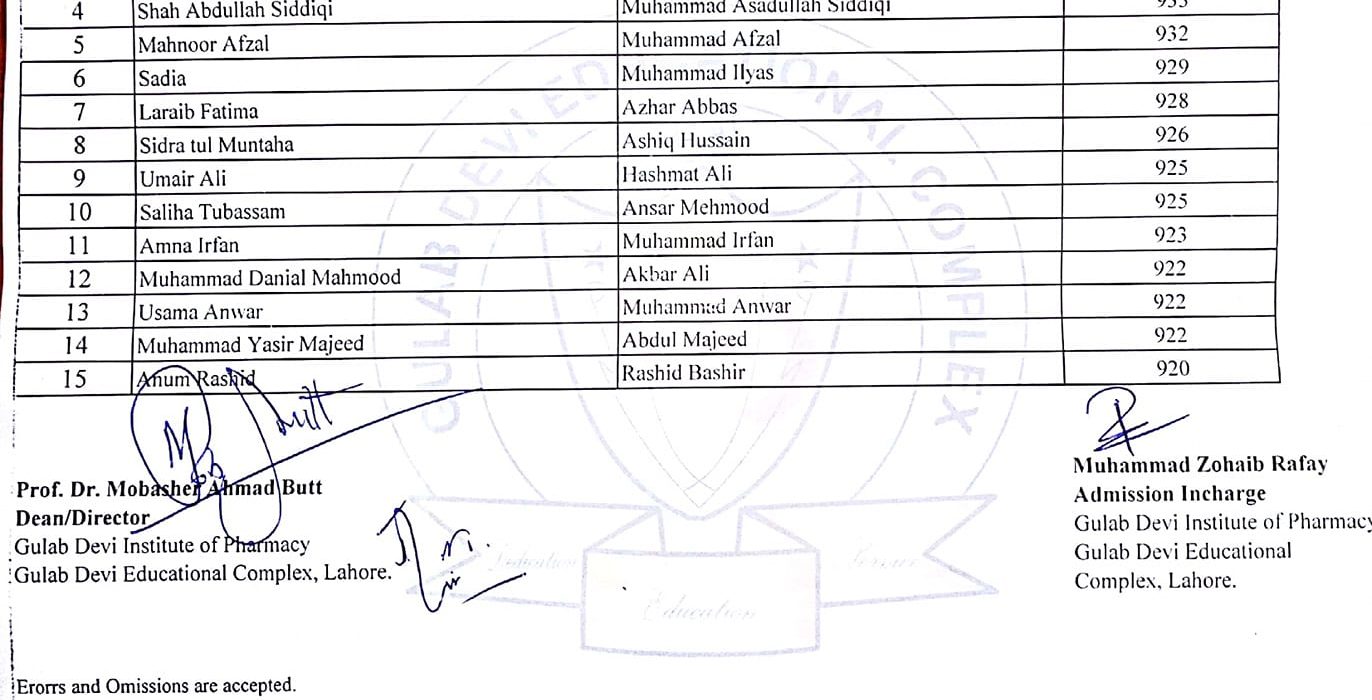 4 Shah Abdullah Siddiqi Muhammad Asadullah Siddiqi 933
5 Mahnoor Afzal Muhammad Afzal 932
6 Sadia Muhammad Ilyas 929
7 Laraib Fatima Azhar Abbas 928
8 Sidra tul Muntaha Ashiq Hussain 926
9 Umair Ali Hashmat Ali 925
10 Saliha Tubassam Ansar Mehmood 925
11 Amna Irfan Muhammad Irfan 923
12 Muhammad Danial Mahmood Akbar Ali 922
13 Usama Anwar Muhammad Anwar 922
14 Muhammad Yasir Majeed Abdul Majeed 922
15 Anum Rashid Rashid Bashir 920
GULAB DEVI EDUCATIONAL COMPLEX
Prof. Dr. Mobasher Ahmad Butt
Dean/Director
Gulab Devi Institute of Pharmacy
Gulab Devi Educational Complex, Lahore.
Muhammad Zohaib Rafay
Admission Incharge
Gulab Devi Institute of Pharmacy
Gulab Devi Educational
Complex, Lahore.
Education
Erorrs and Omissions are accepted.